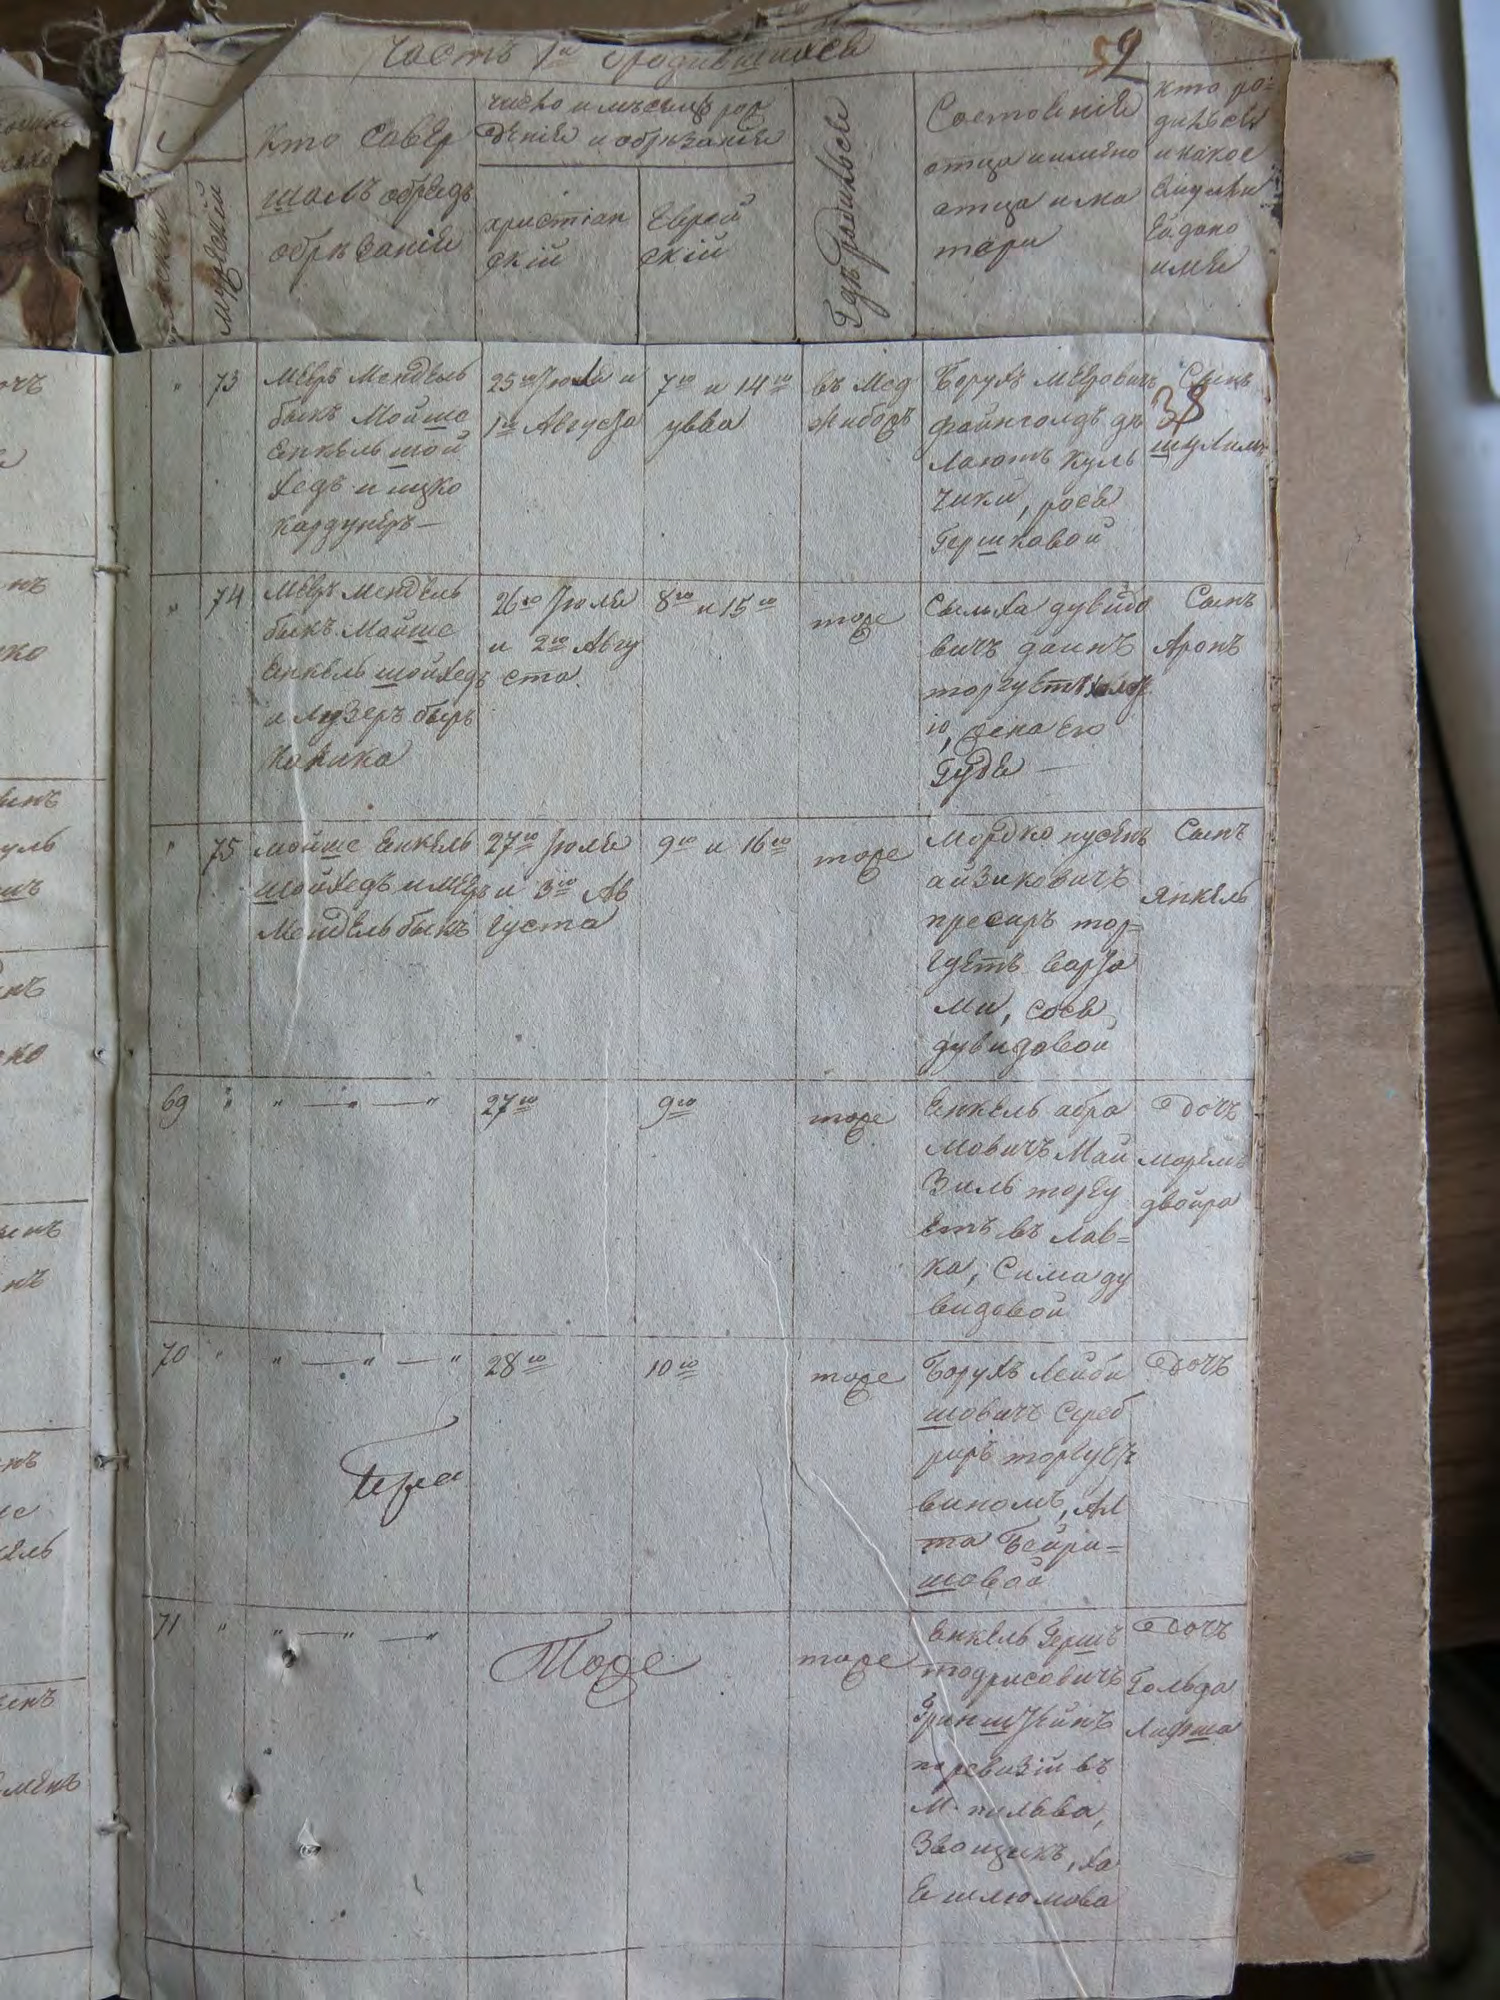 Часть 1я о родившихся
52
женский
мужеский
кто Совер
шалъ обрядъ
обрѣзаніе
число и мѣсяцъ рож
дѣніе и обрѣзаніе
христіан
скій
Еврей
скій
Гдѣ Родился
Состояніе
отца и имѣно
отца и ма
тери
кто ро=
дился
и какое
Ему или
Ей дано
имя
"
73
Мееръ Мендель
быкъ Мойше
Енкель шой
хедъ и ицко
кордунеръ—
25го Іюля и
1го Августа
7го и 14го
увва
въ Мед
жибожъ
Борухъ Меровичъ
файнголдъ дѣ
лаютъ куль
чики, рося
Гершковой
Сынъ
38
шулимъ
"
74
Мееръ Мендель
быкъ Мойше
Енкель шойхедъ
и лузеръ быр
навика
26го Іюля
и 2го Авгу
ста.
8го и 15го
тоже
Сыльха дувидо
вичъ даинъ
торгуетъ
ю, жена его
Гудя —
Сынъ
Аронъ
"
75
мойше Енкель
шойхедъ и меръ
Мендель быкъ
27го Іюля
и 3го Ав
густа
9го и 16го
тоже
Мордко нусенъ
айзиковичъ
пресиръ тор=
гуетъ
ми, Сося
дувидовой
Сынъ
янкель
69
"
" — " — "
27го
9го
тоже
Енкель абра
мовичъ Май
зиль торгу
етъ въ лав=
ка, Сима ду
видовой
дочъ
марямъ
двойра
70
"
" — " — "
28го
10го
тоже
Борухъ Лейби
шовичъ Среб
риръ торгуетъ
виномъ, Ал
та Бейри=
шовой
дочъ
71
"
" — " — "
Тоже
тоже
Енкель Гершъ
тодрисовичъ
Гринштейнъ
по ревизій въ
м. пильва,
Звощикъ, ха
я шлюмова
дочъ
Гольда
Лифша